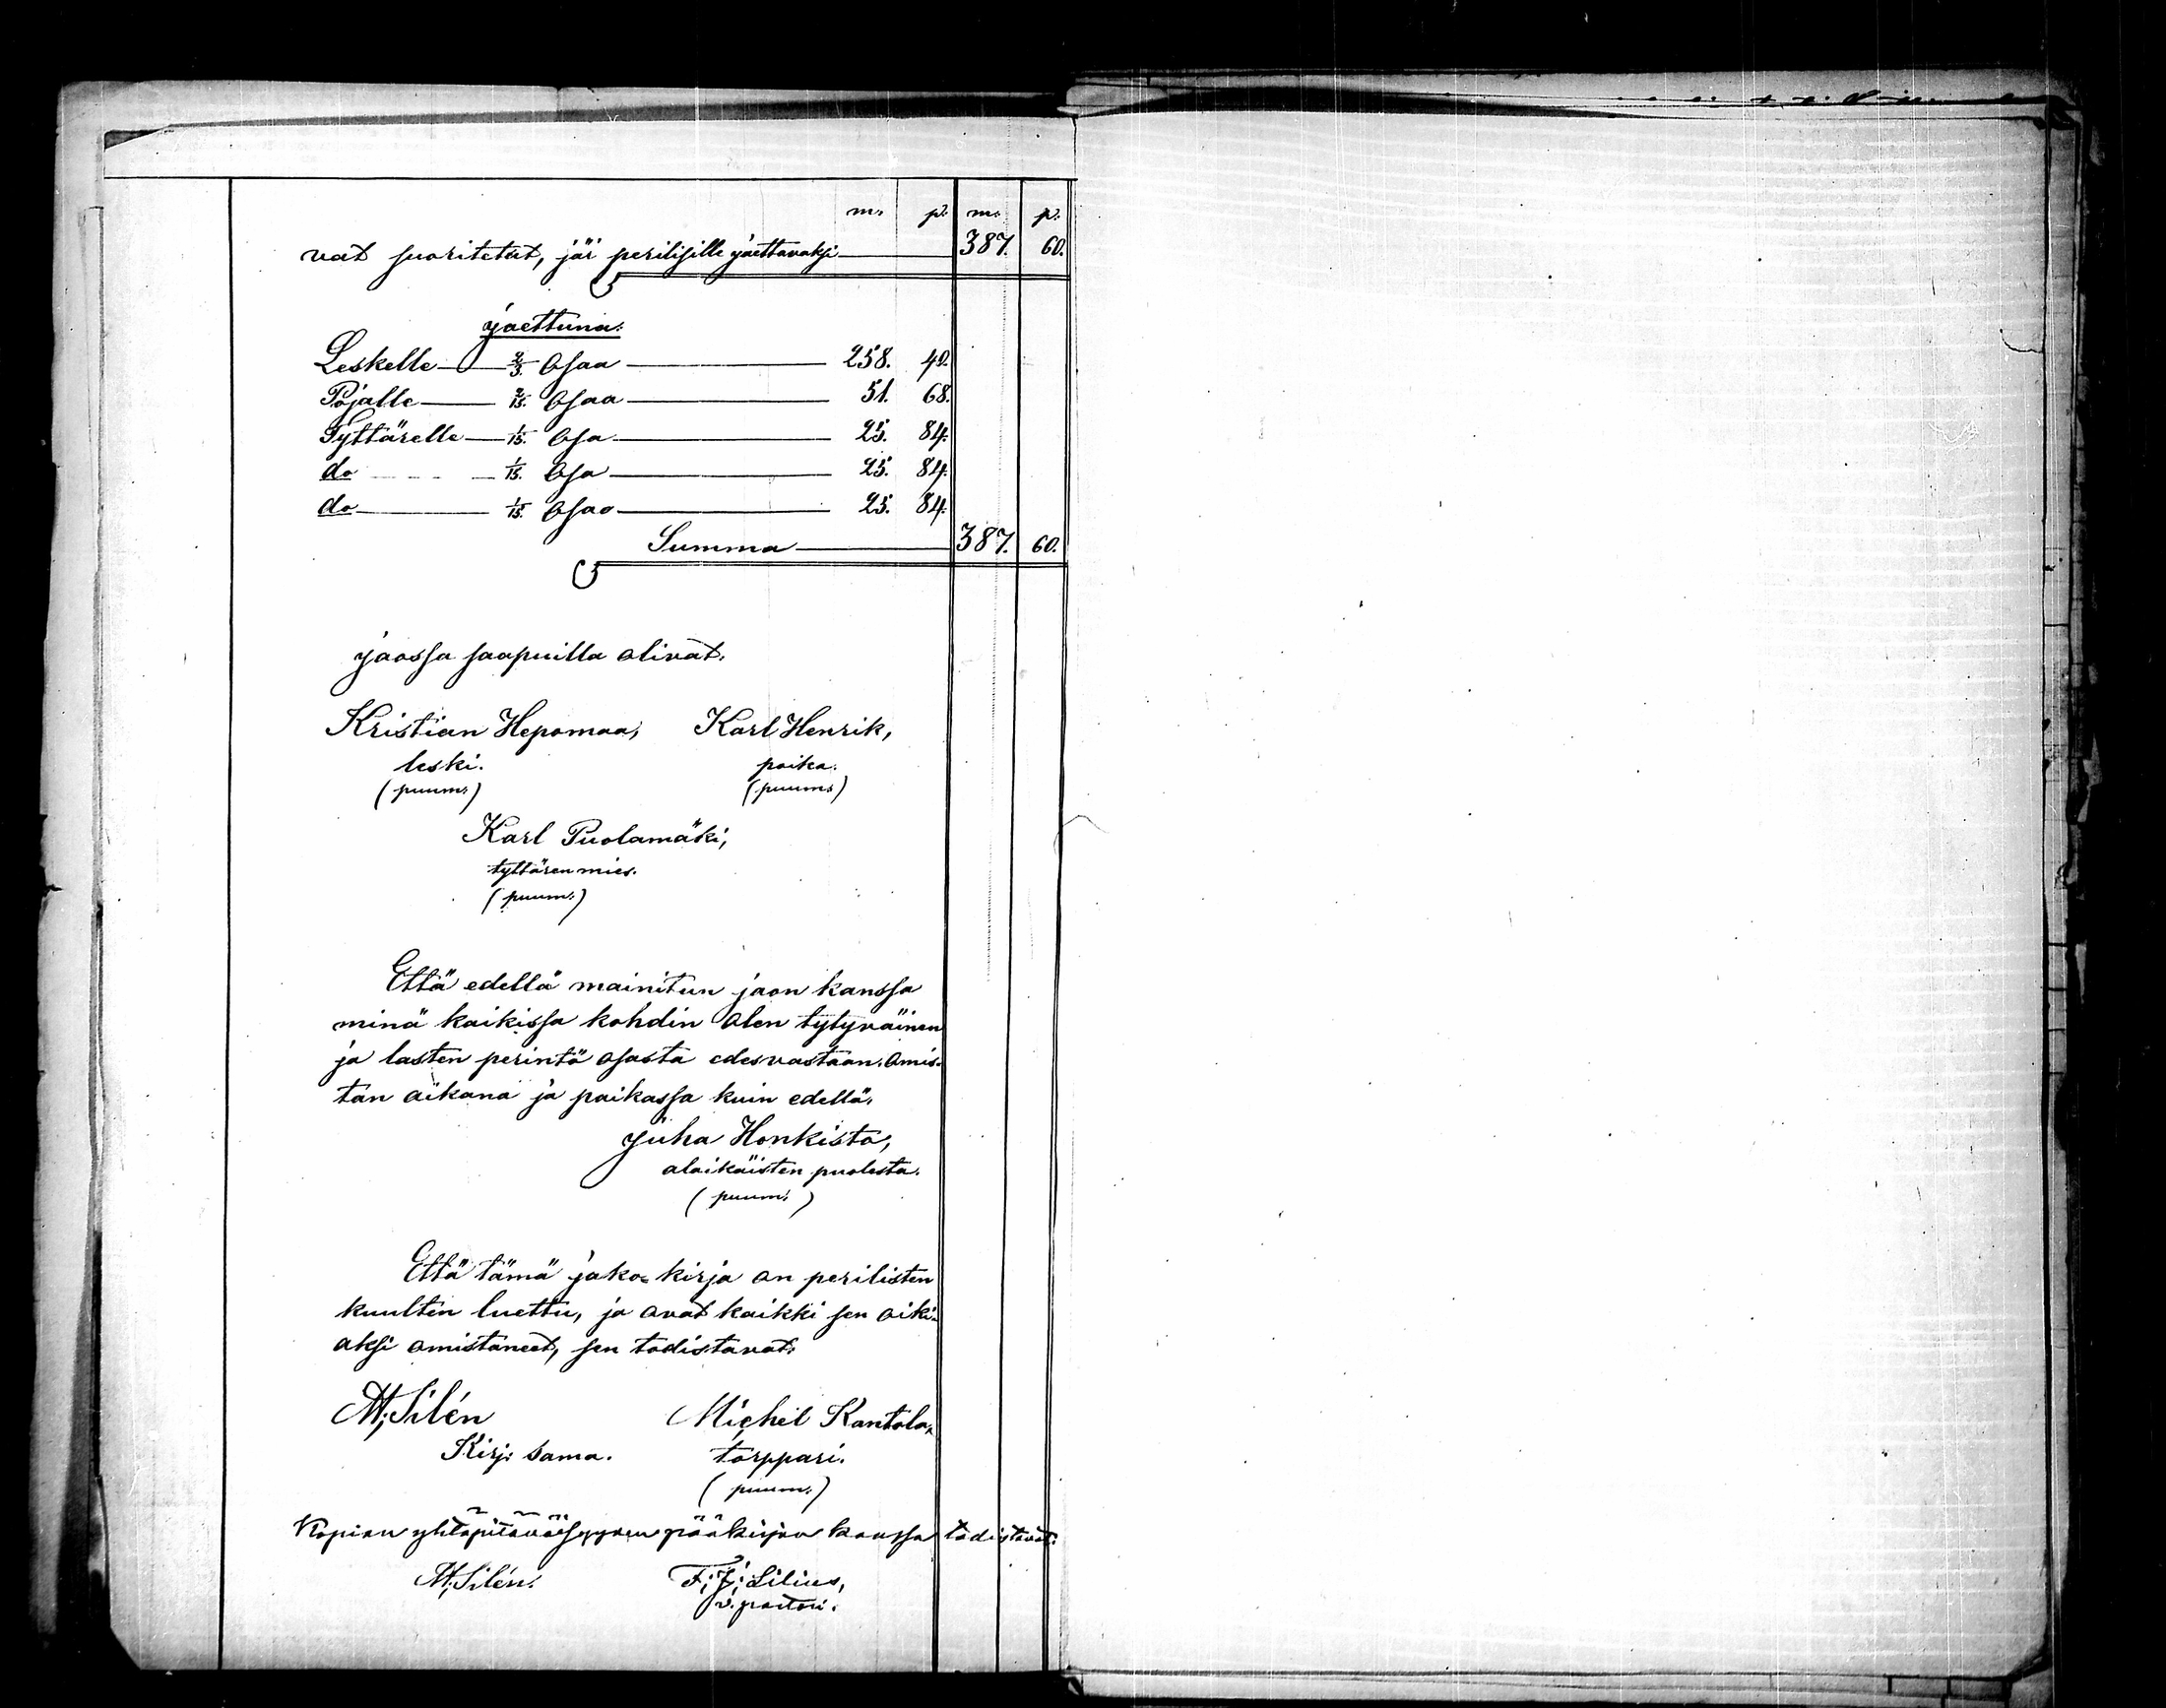 m. p. m. p.
vat suoritetut, jäi perilisille jaettavaksi 387. 60.
jaettuna:
Leskelle 2/3. Osaa 258. 40.
Pojalle 2/15. Osaa 51. 68.
Tyttärelle 1/15. Osa 25. 84.
do 1/15. Osa 25. 84.
do 1/15 Osaa 25. 84.
Summa 387. 60.
jaossa saapuilla olivat.
Kristian Hepomaa, Karl Henrik,
leski. poika.
(puum.) (puum.)
Karl Puolamäki,
tyttären mies.
(puum.)
Että edellä mainitun jaon kanssa
minä kaikissa kohdin olen tytyväinen
ja lasten perintö osasta edesvastaan. Amis-
tan aikana ja paikassa kuin edellä.
Juha Honkisto,
alaikäisten puolesta.
(puum.)
Että tämä jako-kirja on perilisten
kuulten luettu, ja ovat kaikki sen oiki-
aksi omistaneet, sen todistavat.
M. Silén Michel Kantola,
Kirj. sama. torppari.
(puum.)
Kopian yhtäpitäväisyyden pääkirjan kanssa todistavat:
M. Silén. F. J. Lilius,
v. pastori.